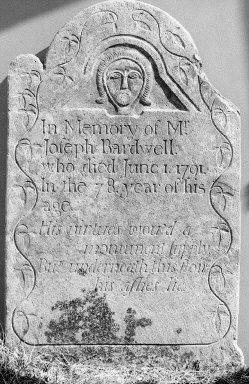 In Memory of Mr
Joseph Bardwell,
who died June 1. 1791,
in the 78, year of his
age.
His virtues wou'd a
monument supply
But underneath this
his ashes lie.